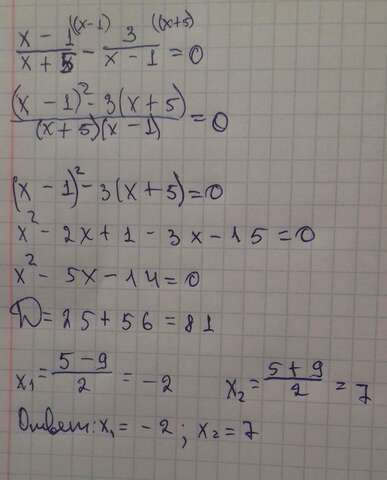 (x - 1)/(x + 5) ((x-1) - 3/(x - 1) ((x+5) = 0
((x - 1)² - 3(x + 5))/((x + 5)(x - 1)) = 0
(x - 1)² - 3(x + 5) = 0
x² - 2x + 1 - 3x - 15 = 0
x² - 5x - 14 = 0
D = 25 + 56 = 81
x₁ = (5 - 9)/2 = -2 x₂ = (5 + 9)/2 = 7
Ответ: x₁ = -2; x₂ = 7